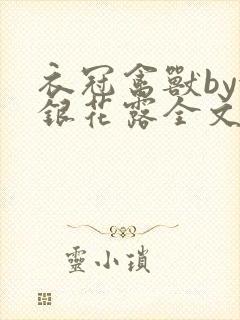 衣冠禽獸by
銀花露全文
靈小瑣